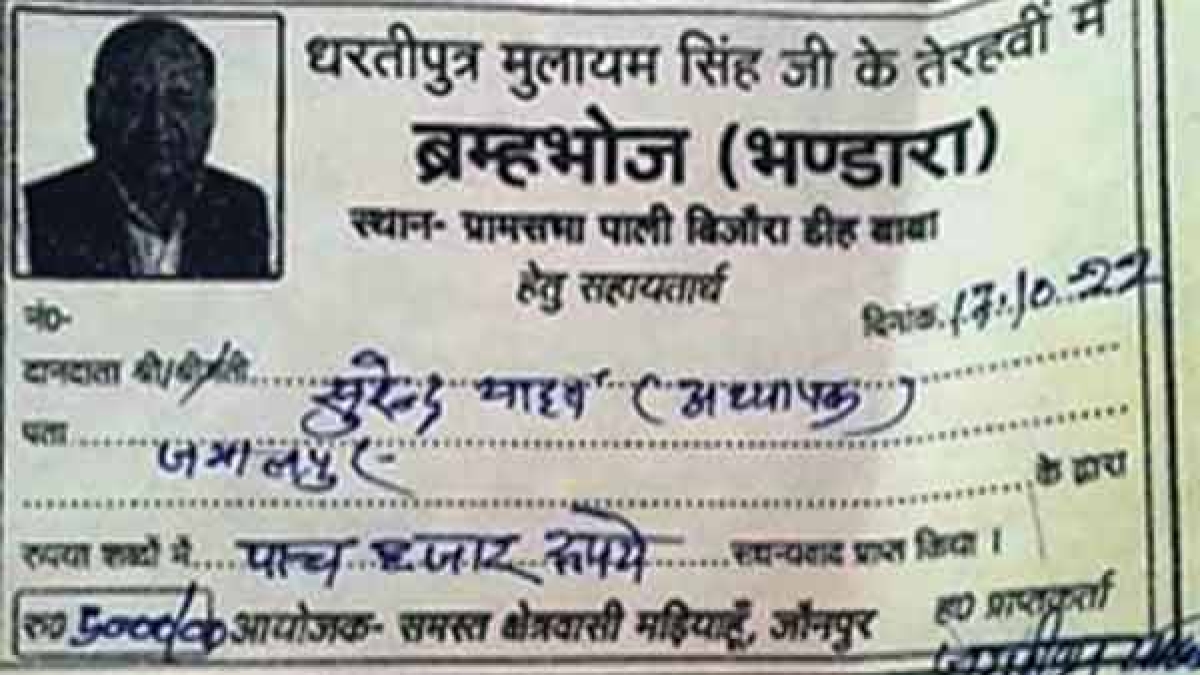 धरतीपुत्र मुलायम सिंह जी के तेरहवीं में
ब्रम्हभोज (भण्डारा)
स्थान- ग्रामसभा पाली बिजौरा डीह बाबा
हेतु सहायतार्थ
नं0-
दिनांक. 17.10.22
दानदाता श्री/श्रीमती सुरेन्द्र यादव (अध्यापक)
पता जमालपुर
के द्वारा
रुपया शब्दों में पान्च हजार रूपये सधन्यवाद प्राप्त किया।
रु0 5000/00 आयोजक- समस्त क्षेत्रवासी मड़ियाहूँ, जौनपुर
ह0 प्राप्तकर्ता